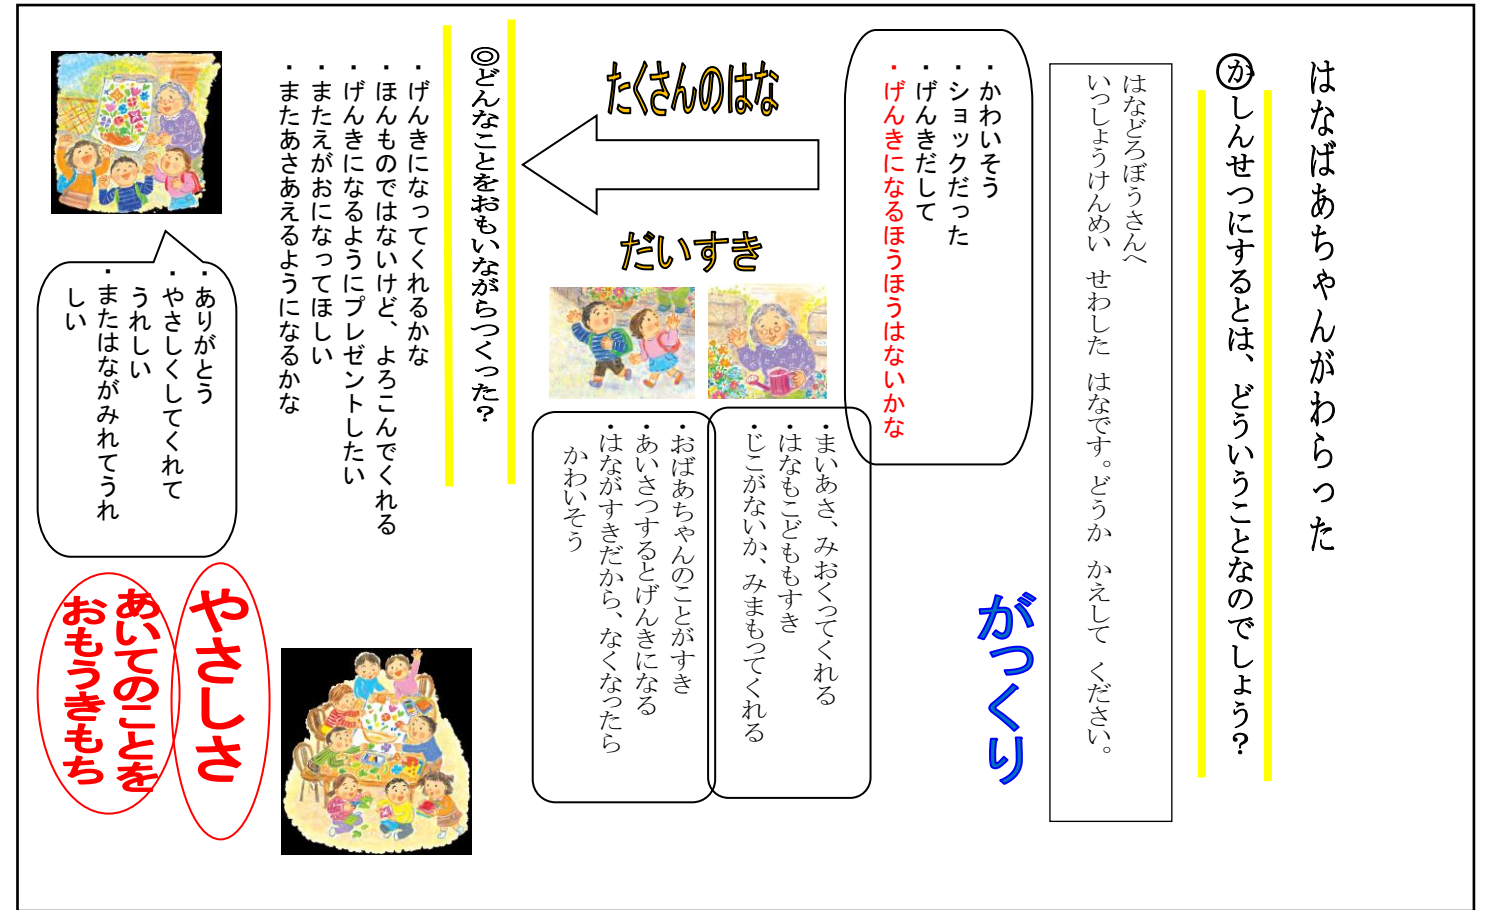 はなばあちゃんがわらった
かしんせつにするとは、どういうことなのでしょう？
はなどろぼうさんへ
いっしょうけんめい せわした はなです。どうか かえして ください。
がっくり
・かわいそう
・ショックだった
・げんきだして
・げんきになるほうほうはないかな
たくさんのはな
だいすき
・まいあさ、みおくってくれる
・はなもこどももすき
・じこがないか、みまもってくれる
・おばあちゃんのことがすき
・あいさつするとげんきになる
・はながすきだから、なくなったら
かわいそう
◎どんなことをおもいながらつくった？
・げんきになってくれるかな
・ほんものではないけど、よろこんでくれる
・げんきになるようにプレゼントしたい
・またえがおになってほしい
・またあさあえるようになるかな
・ありがとう
・やさしくしてくれて
うれしい
・またはながみれてうれ
しい
やさしさ
あいてのことを
おもうきもち